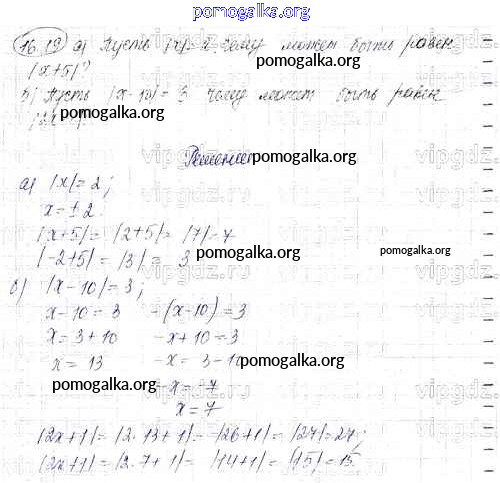 pomogalka.org
16.19 а) Пусть |x|= 2. чему может быть равен
|x+5|?
pomogalka.org
б) Пусть |x-10|= 3 чему может быть равен
pomogalka.org
Решение
pomogalka.org
а) |x|= 2;
x= ± 2.
|x+5|= |2+5|= |7|= 7
|-2+5|= |3|= 3
pomogalka.org
б) |x-10|= 3;
x-10= 3 -(x-10)= 3
pomogalka.org
x= 3+10 -x+10= 3
x= 13 -x= 3-10
pomogalka.org
pomogalka.org
-x= -7
x= 7
|2x+1|= |2·13+1|= |26+1|= |27|= 27;
|2x+1|= |2·7+1|= |14+1|= |15|= 15.
pomogalka.org